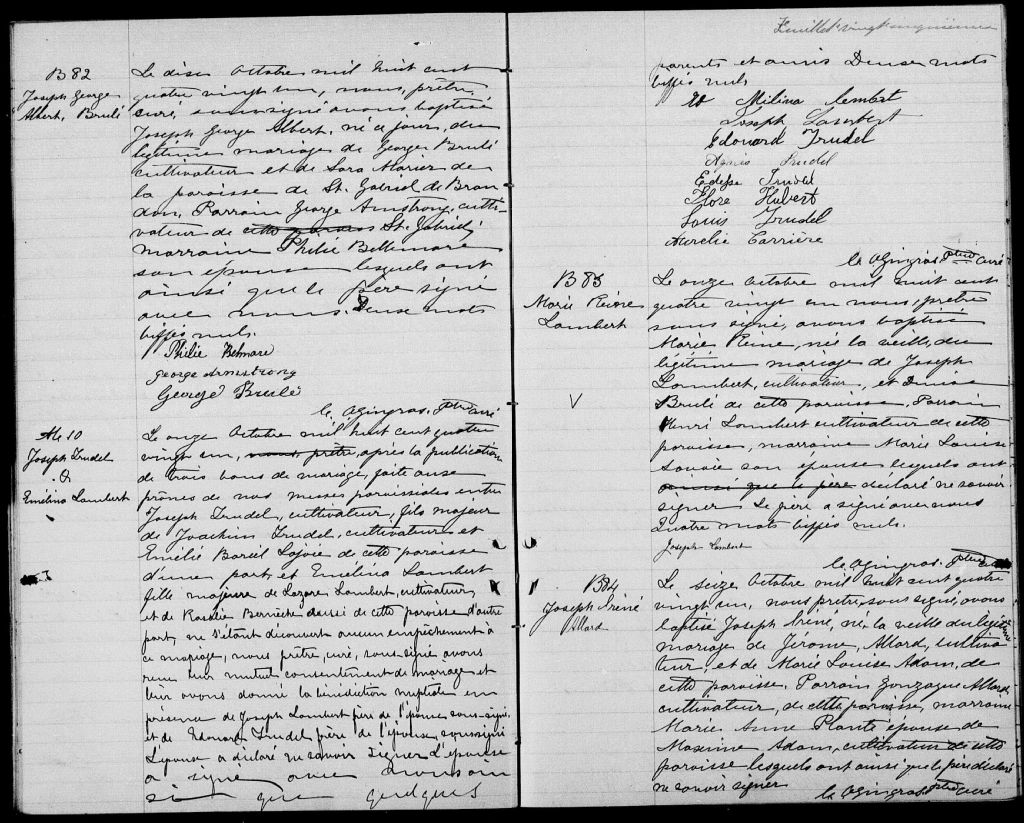 B 82
Joseph George
Albert, Brulé
Le dix Octobre mil huit cent
quatre vingt un, nous, prêtre,
curé, soussigné avons baptisé
Joseph George Albert, né ce jour, du
légitime mariage de George Brulé
cultivateur et de Sara
la paroisse de St. Gabriel de Bran
don, Parrain George Amstrong, culti-
vateur de cette paroisse St. Gabriel,
marraine Philié Bellemare
son épouse lesquels ont
ainsi que le père signé
avec nous. Deux mots
biffés nuls.
Philie Belmare
george Armstrong
George Brulé
c. Gingras. Ptre curé
M 10
Joseph Trudel
&
Emélina Lambert
Le onze Octobre mil huit cent quatre
vingt un, nous prêtre, après la publication
de trois bans de mariage, faite aux
prônes de nos messes paroissiales entre
Joseph Trudel, cultivateur, fils majeur
de Joachim Trudel, cultivateur et
Emélie Bareil Lajoie de cette paroisse
d'une part, et Emélina Lambert
fille majeure de Lazare Lambert, cultivateur,
et de Rosalie Bernèche aussi de cette paroisse d'autre
part, ne s'étant découvert aucun empêchement à
ce mariage, nous prêtre, curé, sous-signé avons
reçu leur mutuel consentement de mariage et
leur avons donné la bénédiction nuptiale en
présence de Joseph Lambert frère de l'épouse sous-signé,
et de Edouard Trudel frère de l'époux, soussigné
L'époux a déclaré ne savoir signer L'épouse
a signé avec nous ain
si que quelques
Feuillet vingt cinquième
parents et amis Deux mots
biffés nuls
Mélina Lambert
Joseph Lambert
Edouard Trudel
Agnès Trudel
Trudel
Flore Hubert
Louis Trudel
Aurelie Carrière
c. Gingras Ptre curé
B 83
Marie Reine
Lambert
V
Le onze Octobre mil huit cent
quatre vingt un nous, prêtre
sous signé, avons baptisé
Marie Reine, née la veille, du
légitime mariage de Joseph
Lambert, cultivateur, et
Brulé de cette paroisse. Parrain
Henri Lambert cultivateur de cette
paroisse, marraine Marie Louise
Savoie son épouse lesquels ont
ainsi que le père déclaré ne savoir
signer Le père a signé avec nous
Quatre mots biffés nuls.
Joseph Lambert
c. Gingras. Ptre curé
B 84
Joseph Iréné
Allard
Le seize Octobre mil huit cent quatre
vingt un, nous prêtre, sous signé, avons
baptisé Joseph Iréné, né la veille du légitime
mariage de Jérome Allard, cultiva
teur, et de Marie Louise Adam, de
cette paroisse. Parrain Gonzague Allard,
cultivateur, de cette paroisse, marraine
Marie Anne Plante épouse de
Maxime Adam, cultivateur de cette
paroisse lesquels ont ainsi que le père déclaré
ne savoir signer
c. Gingras Ptre curé